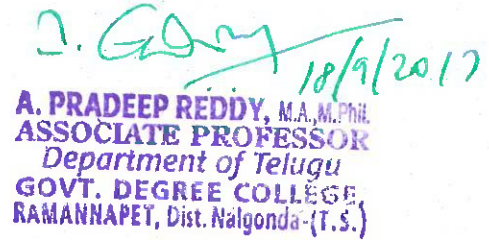 18/9/2017
A. PRADEEP REDDY, M.A.,M.Phil.
ASSOCIATE PROFESSOR
Department of Telugu
GOVT. DEGREE COLLEGE,
RAMANNAPET, Dist. Nalgonda-(T.S.)